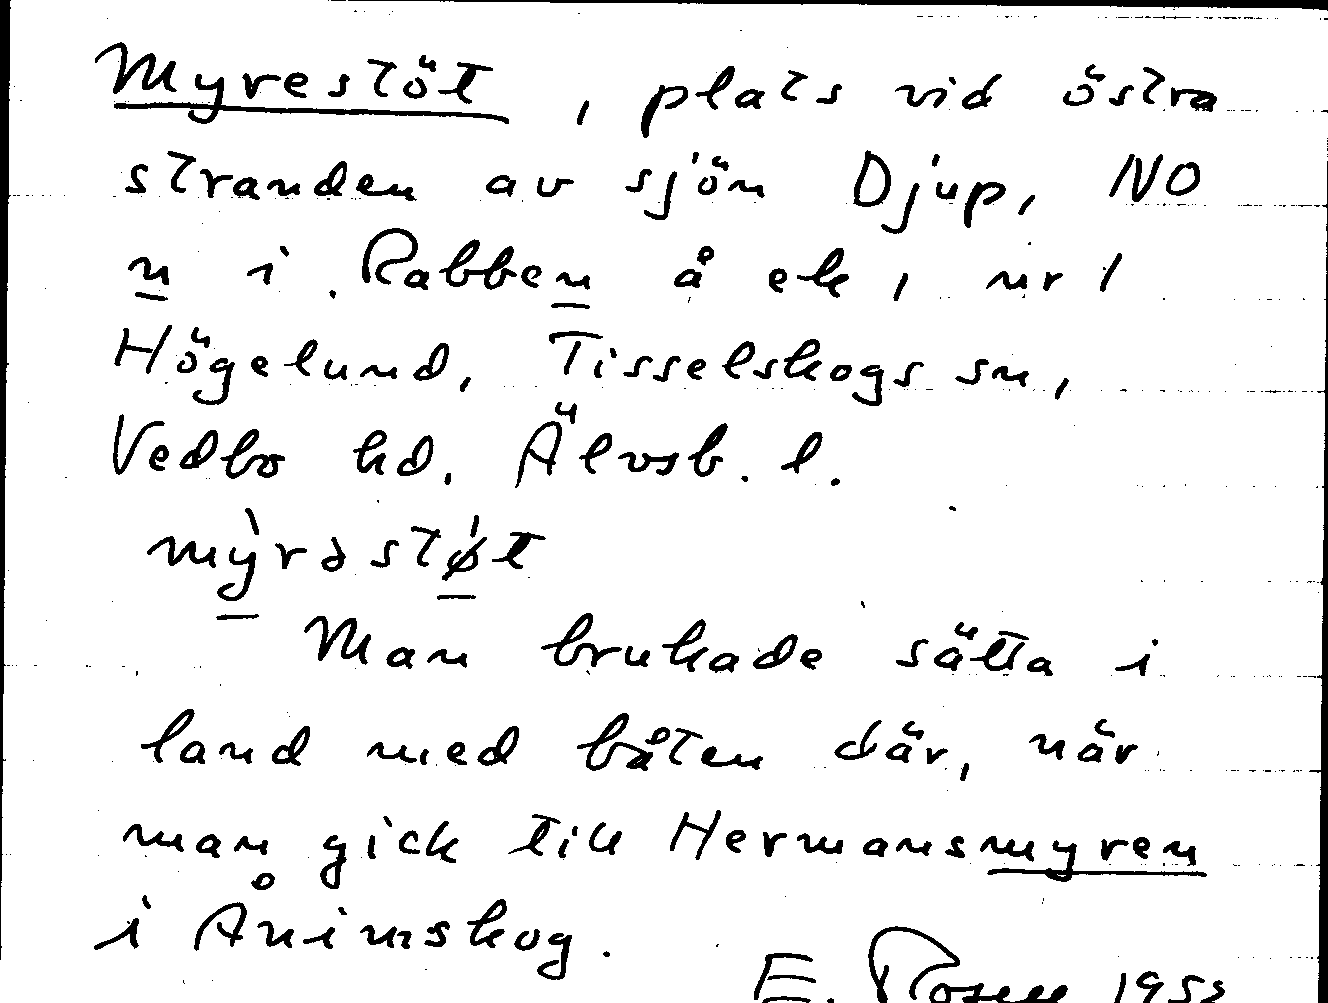 Myrestöt, plats vid östra
stranden av sjön Djup, NO
n i Rabben å ek, nr 1
Högelund, Tisselskogs sn,
Vedbo hd, Älvsb. l.
mỳrəstǿt
Man brukade sätta i
land med båten där, när
man gick till Hermansmyren
i Ånimskog.
E. Rosen